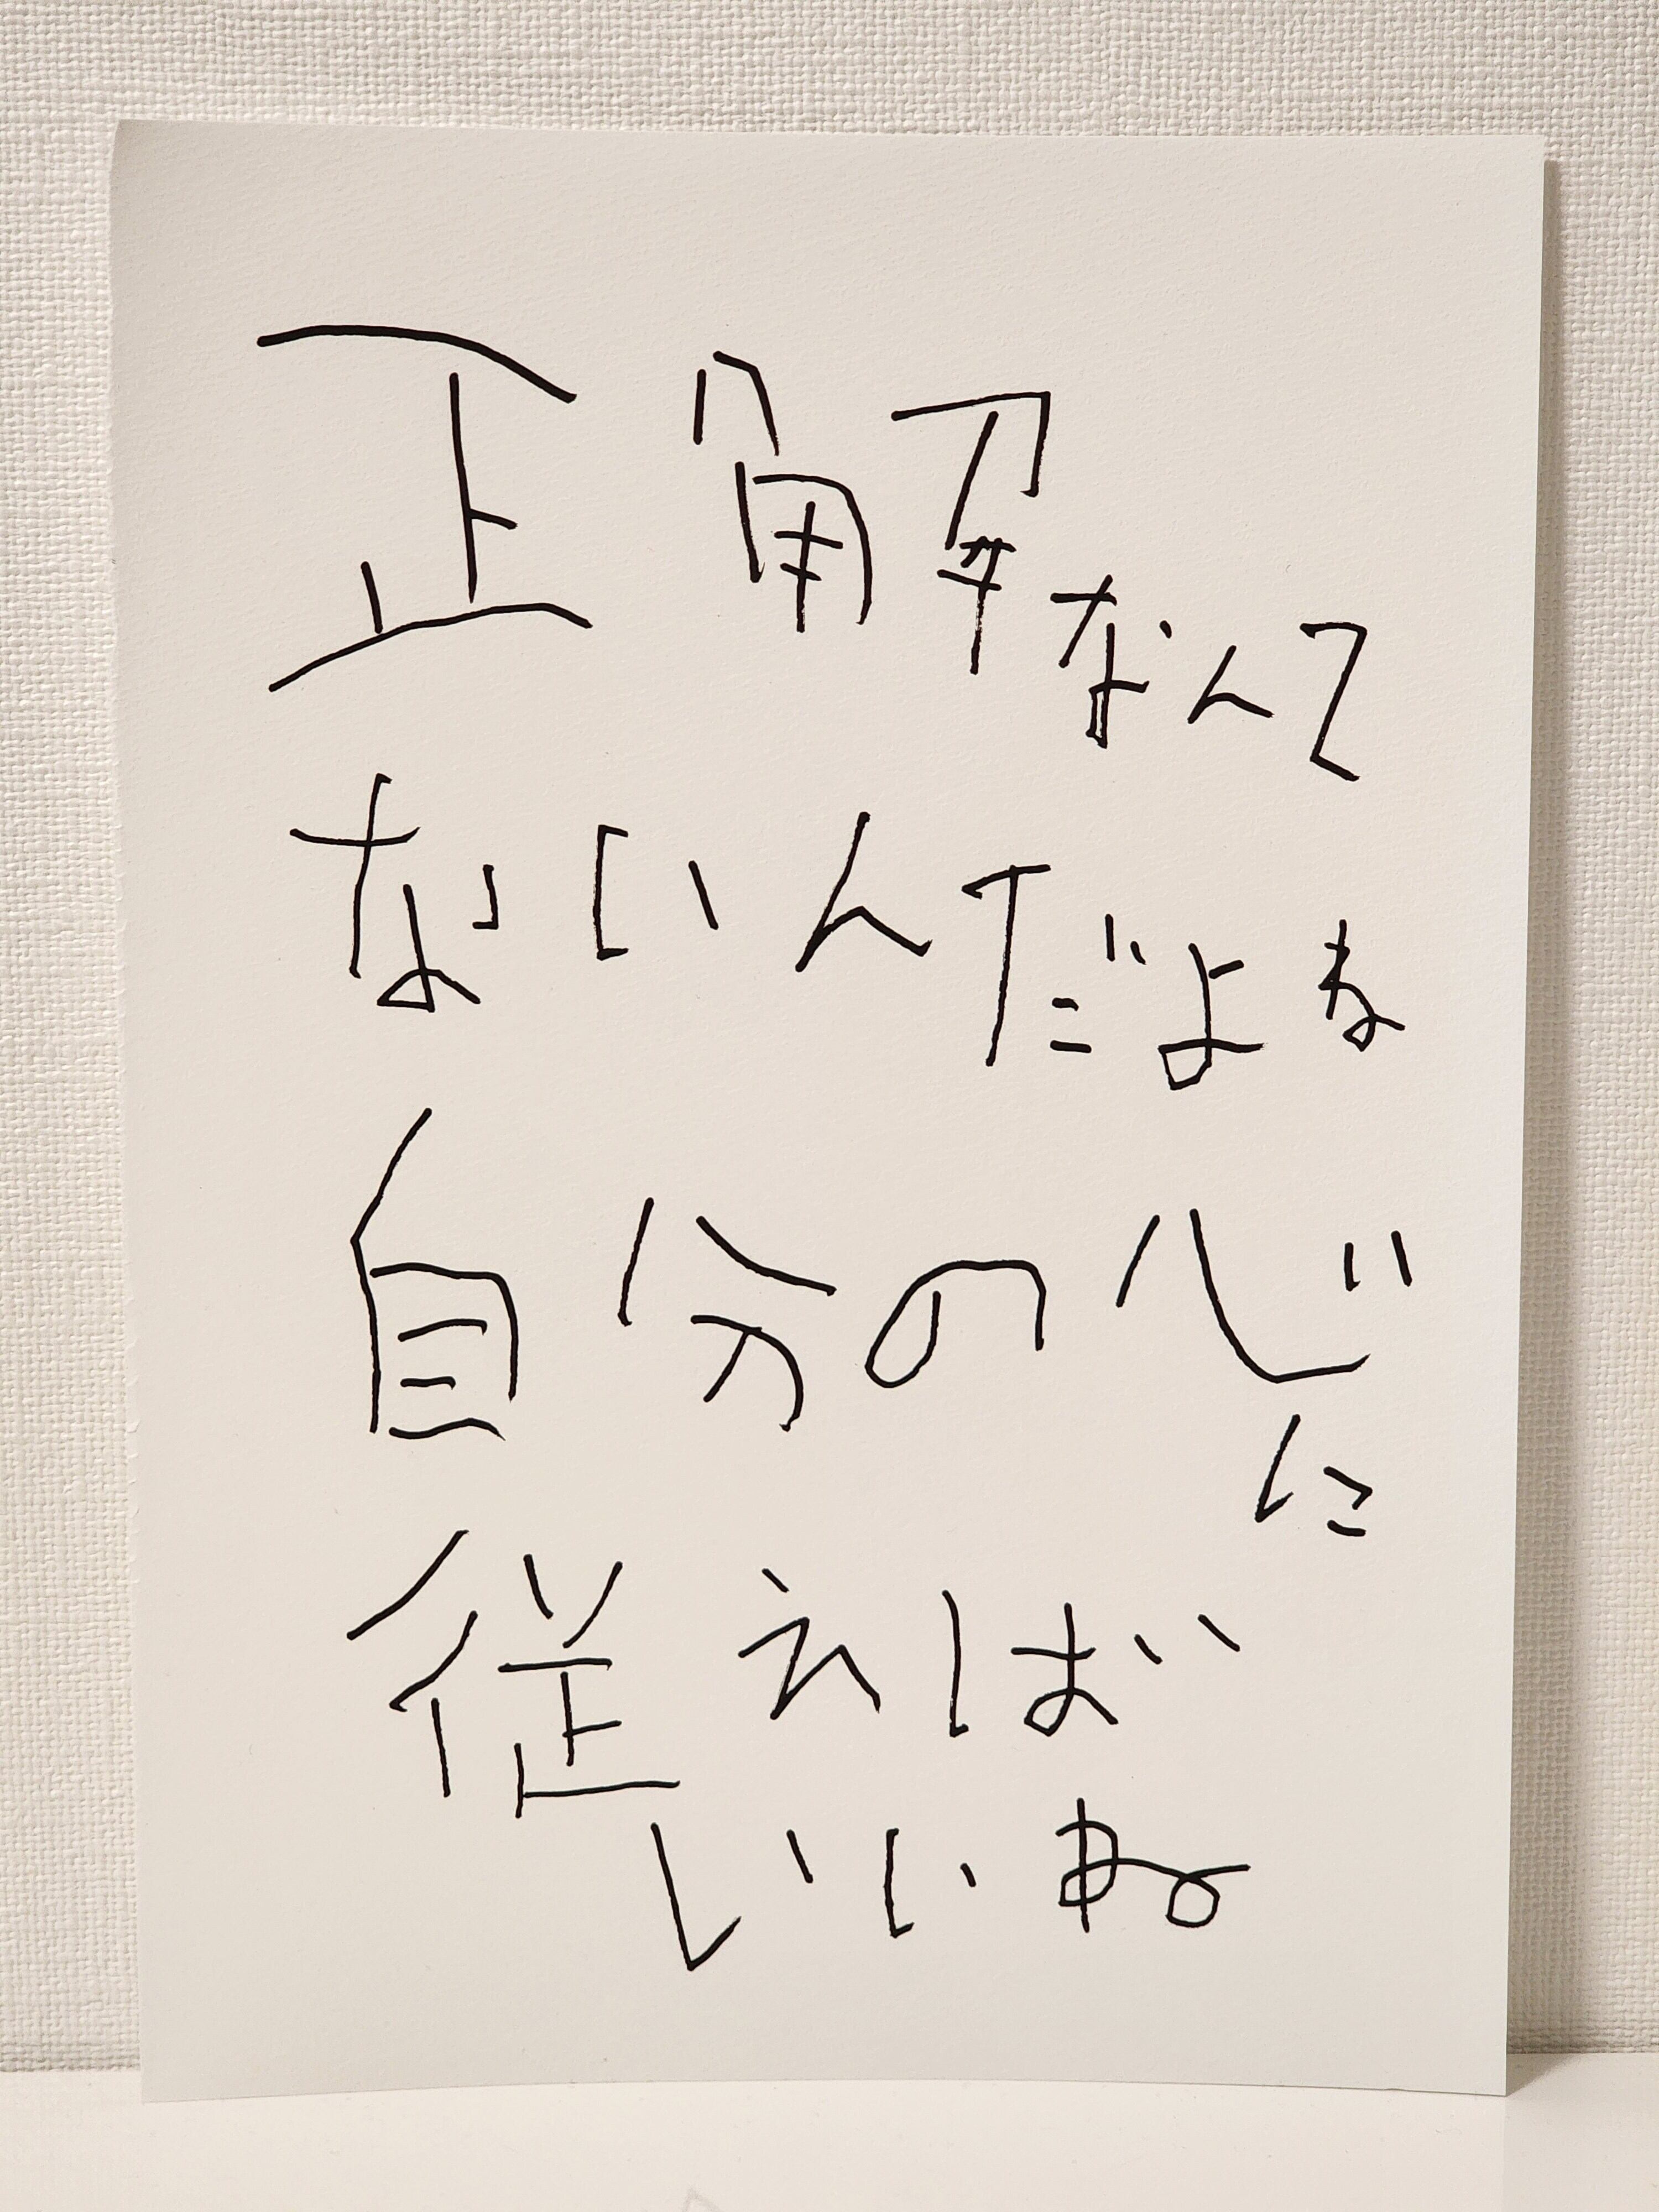 正解なんて
ないんだよね
自分の心に
従えば
いいね